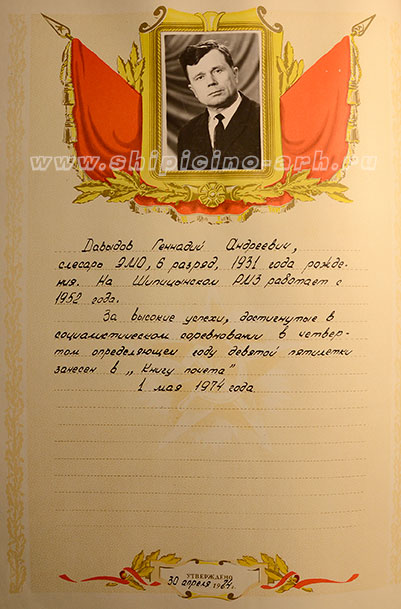 www.shipicino-arh.ru
Давыдов Геннадий Андреевич,
слесарь ЭМО, 6 разряд, 1931 года рожде-
ния. На Шипицынском РМЗ работает с
1952 года.
За высокие успехи, достигнутые в
социалистическом соревновании в четвер-
том определяющем году девятой пятилетки
занесен в „Книгу почета"
1 мая 1974 года.
УТВЕРЖДЕНО
30 апреля 1974 г.